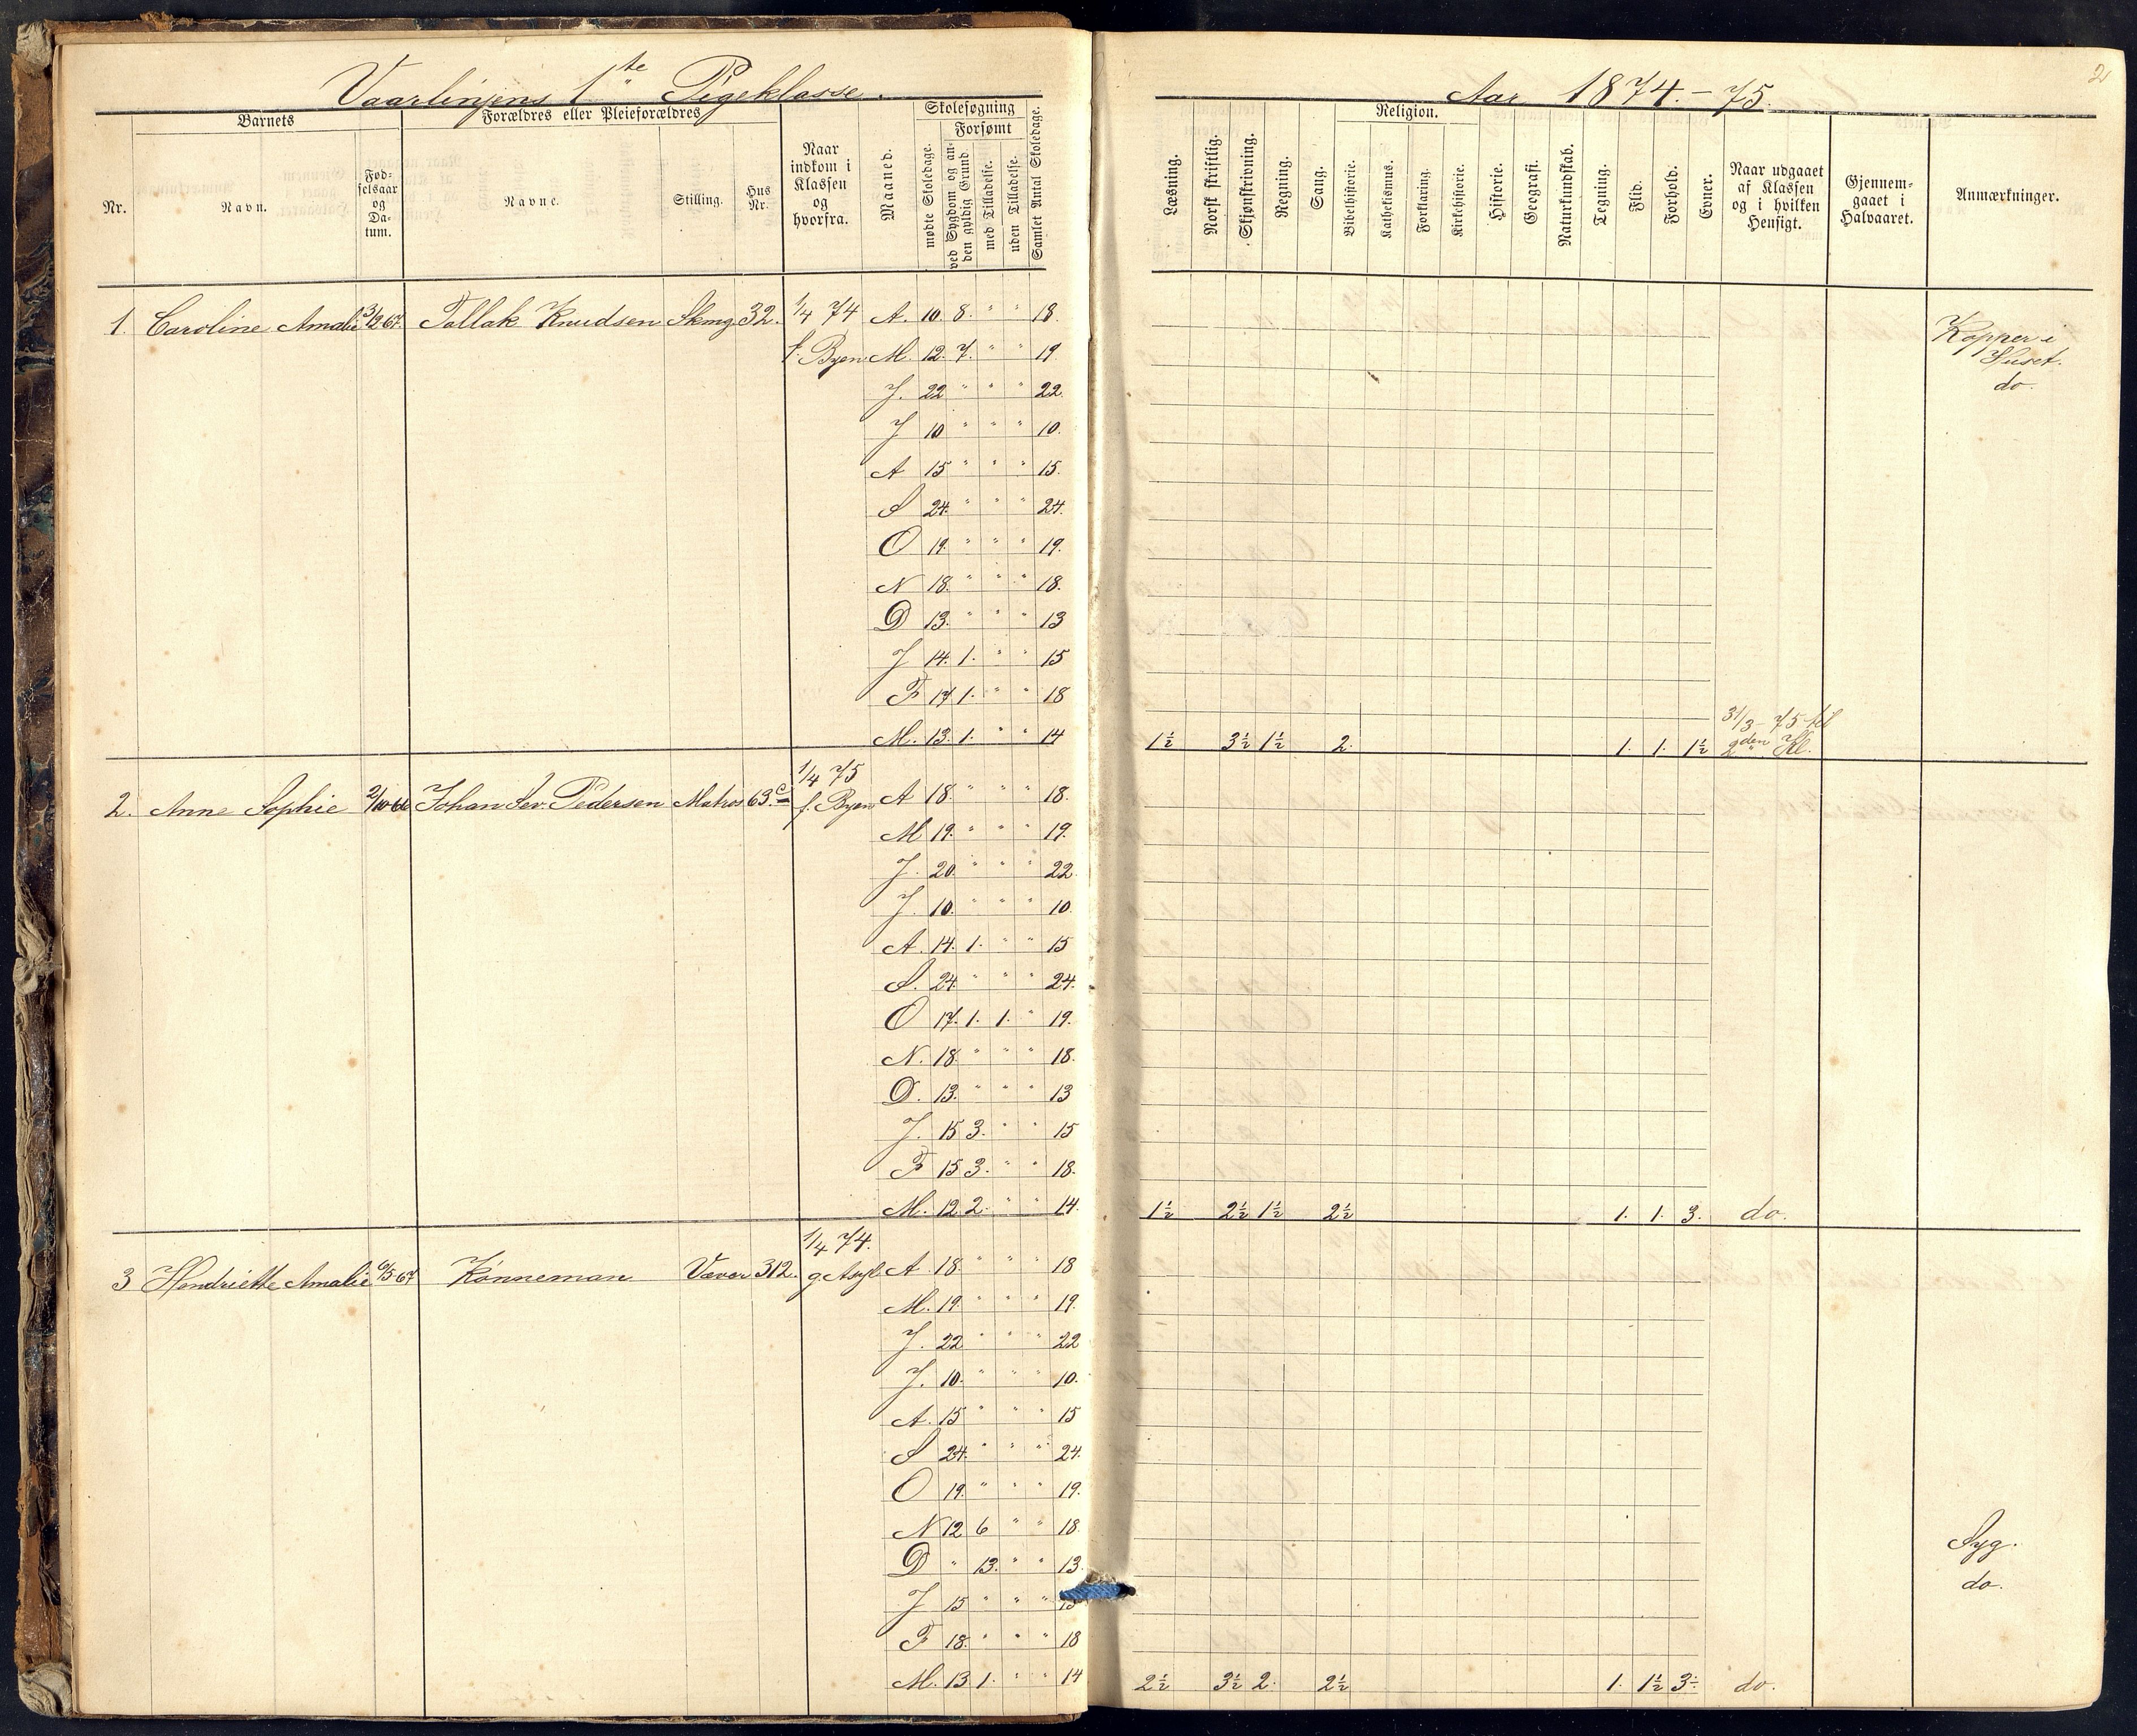 Vaarlinjens 1ste Pigeklasse.
Aar 1874.-75.
2
Nr.
Barnets
Navn.
Fød-
selsaar
og
Da-
tum.
Forældres eller Pleieforældres
Navne.
Stilling.
Hus
Nr.
Naar
indkom i
Klassen
og
hvorfra.
Maaned.
Skolesøgning
mødte Skoledage.
Forsømt
ved Sygdom og an-
den gyldig Grund.
med Tilladelse.
uden Tilladelse.
Samlet Antal Skoledage.
Læsning.
Norsk skriftlig.
Skjønskrivning.
Regning.
Sang.
Religion.
Bibelhistorie.
Kathekismus.
Forklaring.
Kirkehistorie.
Historie.
Geografi.
Naturkundskab.
Tegning.
Flid.
Forhold.
Evner.
Naar udgaaet
af Klassen
og i hvilken
Hensigt.
Gjennem-
gaaet i
Halvaaret.
Anmærkninger.
1. Caroline Amalie 3/12 67. Tallak Knudsen Skmg. 32. 1/4 74 A. 10. 8. " " 18. Kopper i
f. Byen M. 12. 7. " " 19 Huset.
J. 22 " " " 22. do.
J 10 " " " 10.
A 15 " " " 15.
S 24. " " " 24.
O 19. " " " 19.
N 18. " " " 18.
D 13. " " " 13
J 14. 1. " " 15
F 17 1. " " 18
31/3 - 75 til
M. 13. 1. " " 14 1½ 3½ 1½ 2. 1. 1. 1½ 2den Kl.
1/4 75
2. Anne Sophie 2/10 66 Johan Sev. Pedersen Matros 63.c f. Byen A 18. " " " 18.
M 19. " " " 19.
J. 20. " " " 22
J. 10. " " " 10
A. 14. 1. " " 15
S. 24. " " " 24.
O 17. 1. 1. " 19.
N. 18. " " " 18.
D. 13. " " " 13
J. 15 3. " " 15
F 15 3. " " 18.
M. 12 2. " " 14. 1½ 2½ 1½ 2½ 1. 1. 3. do.
1/4 74.
3 Hendriette Amalie 6/5 67 Kønneman Væver 312. g. Asyl. A. 18. " " " 18
M. 19. " " " 19.
J. 22 " " " 22
J. 10. " " " 10.
A. 15 " " " 15
S 24. " " " 24.
O 19. " " " 19.
N 12 6 " " 18.
D " 13. " " 13. Syg.
J 15 " " " 15 do.
F 18. " " " 18
M. 13 1. " " 14 2½ 3½ 2. 2½ 1. 1½ 3÷ do.